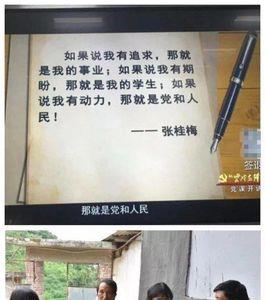 如果说我有追求，那就
是我的事业；如果说我有期
盼，那就是我的学生；如果
说我有动力，那就是党和人
民！
—— 张桂梅
党课开讲
那就是党和人民